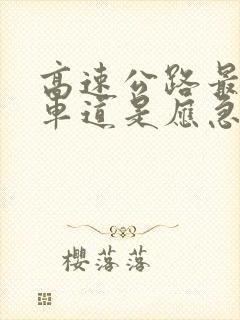 高速公路最
车道是应急
櫻落落